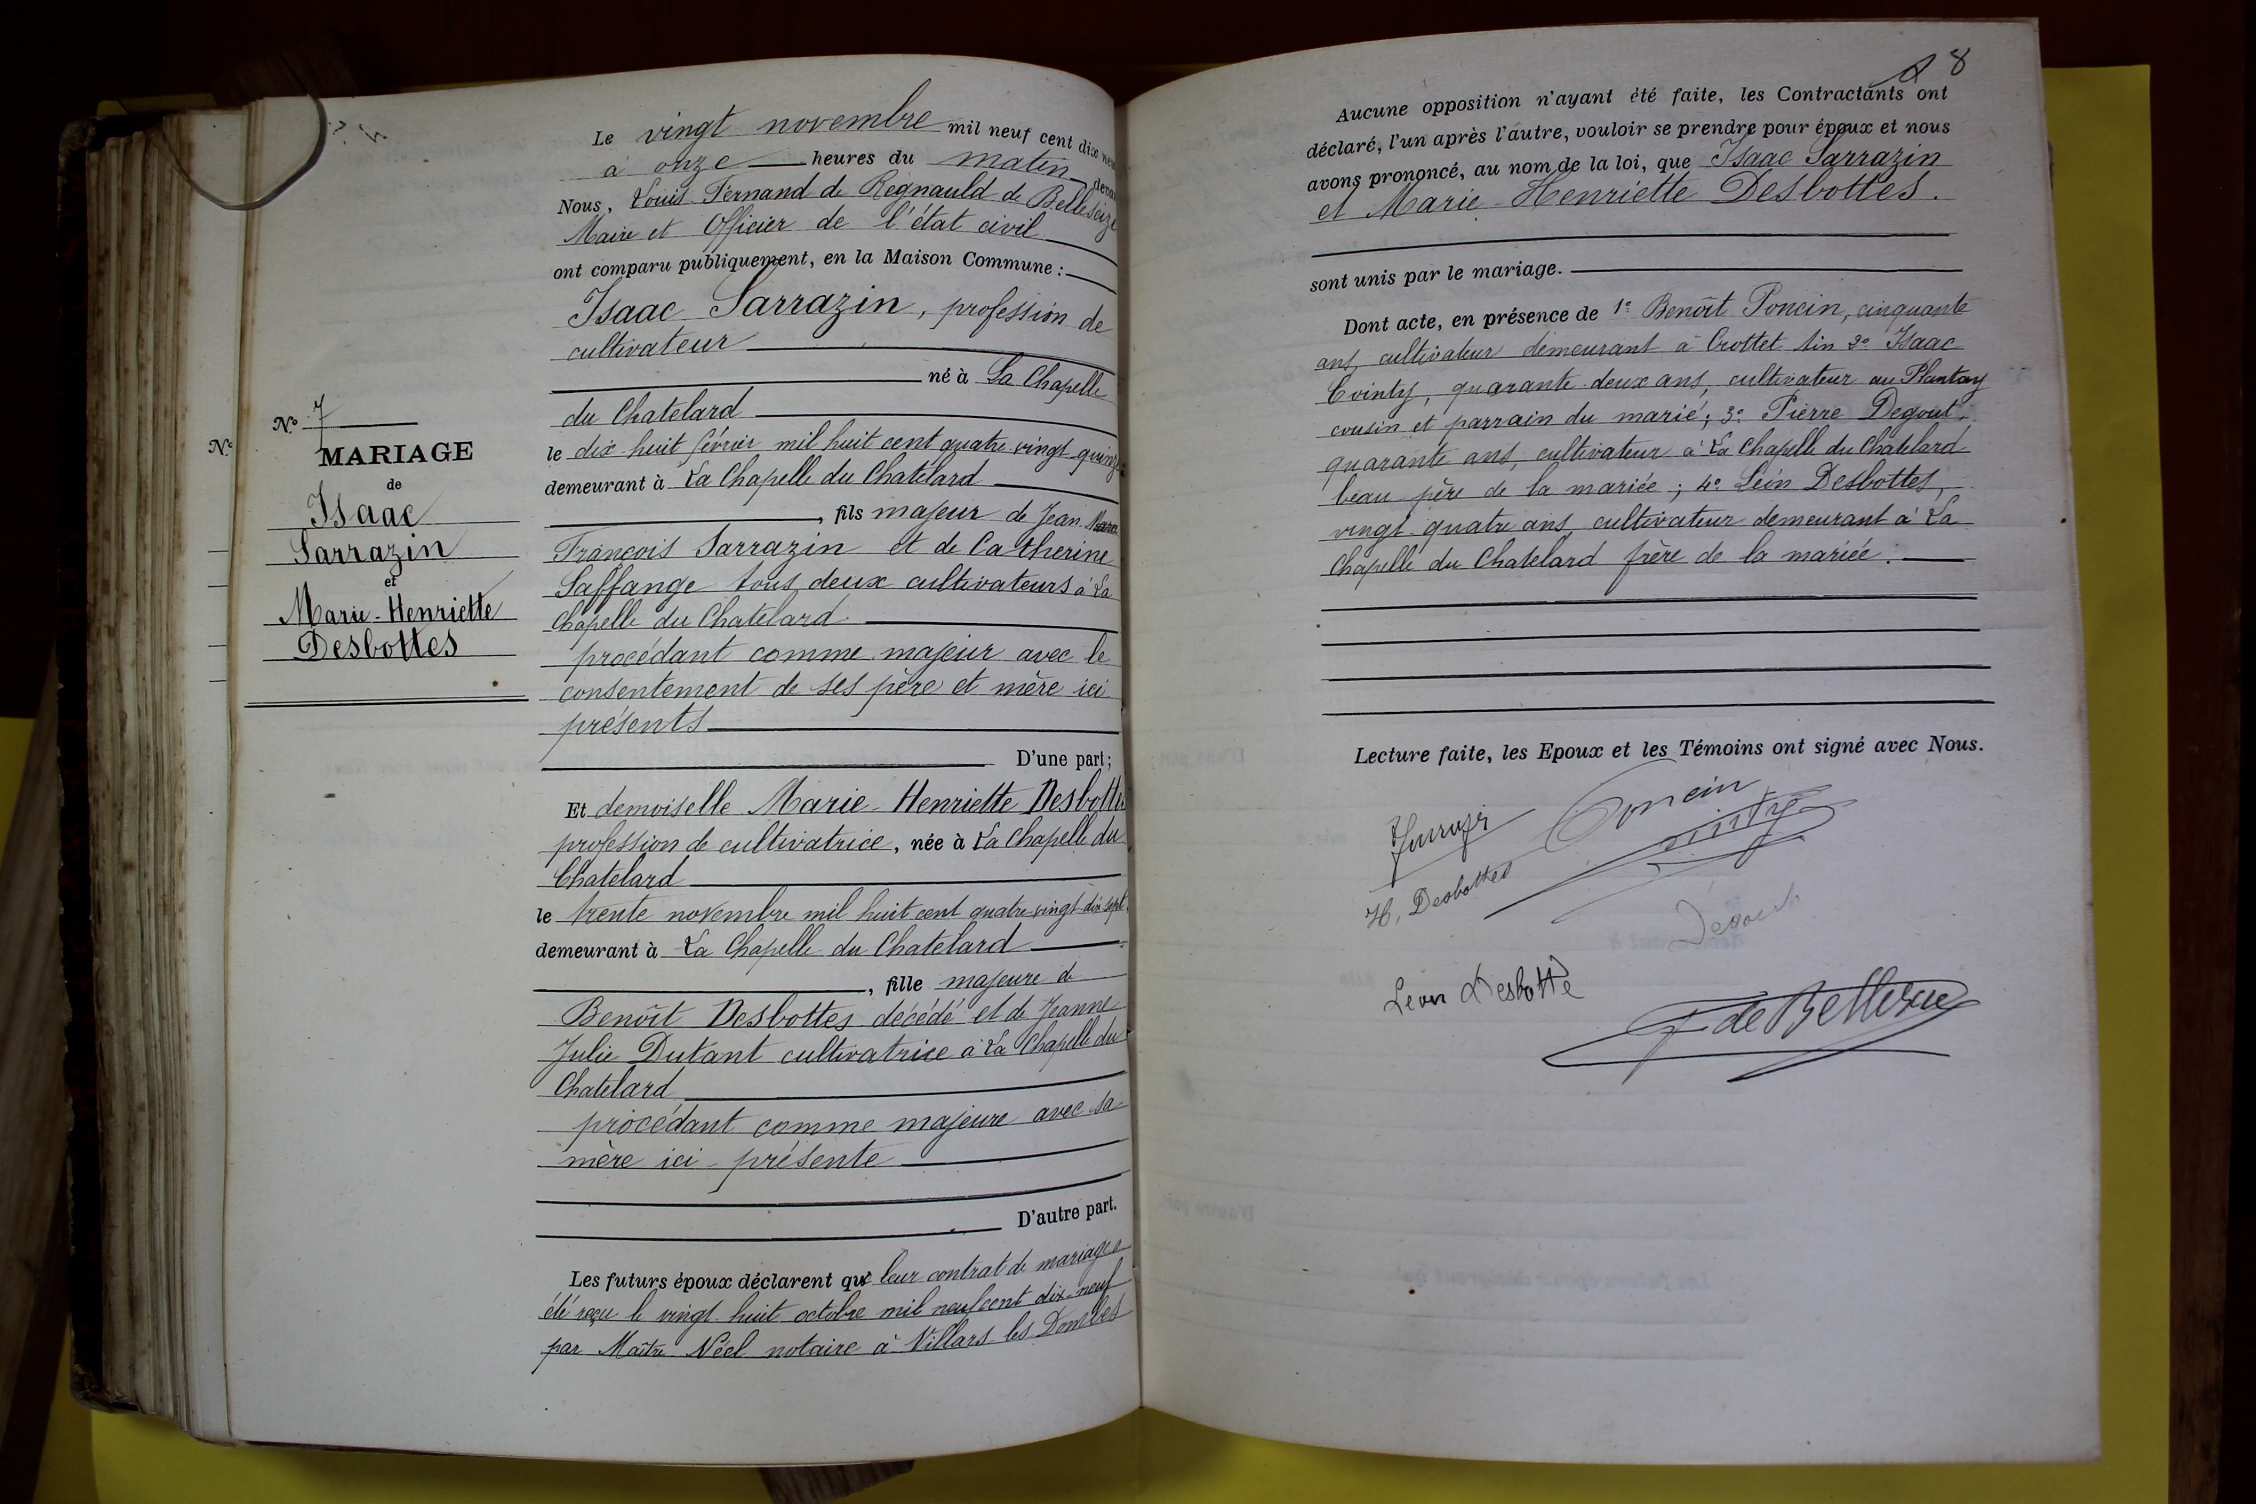 N° 7
MARIAGE
de
Isaac
Sarrazin
et
Marie-Henriette
Desbottes
N°
Le vingt novembre mil neuf cent dix neuf
à onze heures du matin devant
Nous, Louis Fernand de Regnauld de Bellescize
Maire et Officier de l'état civil
ont comparu publiquement, en la Maison Commune :
Isaac Sarrazin, profession de
cultivateur
né à La Chapelle
du Chatelard
le dix huit février mil huit cent quatre vingt quinze
demeurant à La Chapelle du Chatelard
, fils majeur de Jean
François Sarrazin et de Catherine
Saffange tous deux cultivateurs à La
Chapelle du Chatelard
procédant comme majeur avec le
consentement de ses père et mère ici
présents
D'une part;
Et demoiselle Marie-Henriette Desbottes
profession de cultivatrice, née à La Chapelle du
Chatelard
le trente novembre mil huit cent quatre vingt dix sept
demeurant à La Chapelle du Chatelard
, fille majeure de
Benoît Desbottes décédé et de Jeanne
Julie Dutant cultivatrice à La Chapelle du
Chatelard
procédant comme majeure avec sa
mère ici présente
D'autre part.
Les futurs époux déclarent que leur contrat de mariage a
été reçu le vingt huit octobre mil neuf cent dix-neuf
par Maître Néel notaire à Villars les Dombes
8
Aucune opposition n'ayant été faite, les Contractants ont
déclaré, l'un après l'autre, vouloir se prendre pour époux et nous
avons prononcé, au nom de la loi, que Isaac Sarrazin
et Marie-Henriette Desbottes.
sont unis par le mariage.
Dont acte, en présence de 1° Benoît Poncin, cinquante
ans, cultivateur demeurant à Crottet 2° Isaac
Cointy, quarante deux ans, cultivateur au Plantay
cousin et parrain du marié; 3° Pierre Degout
quarante ans, cultivateur à La Chapelle du Chatelard
beau père de la mariée; 4° Léon Desbottes,
vingt quatre ans cultivateur demeurant à La
Chapelle du Chatelard frère de la mariée.
Lecture faite, les Epoux et les Témoins ont signé avec Nous.
Poncin
H. Desbottes
Degout
Léon Desbotte